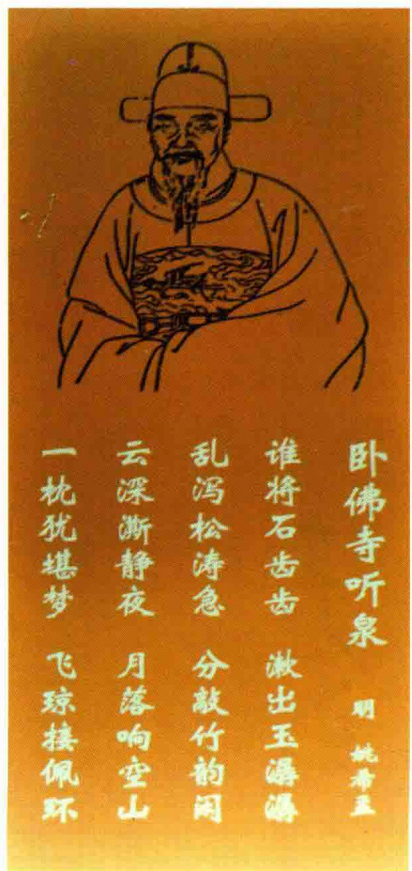 卧佛寺听泉 明 姚希孟
谁将石齿齿 漱出玉潺潺
乱泻松涛急 分敲竹韵闲
云深澌静夜 月落响空山
一枕犹堪梦 飞琼接佩环